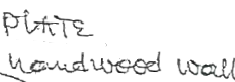 PLATE
handwood wall